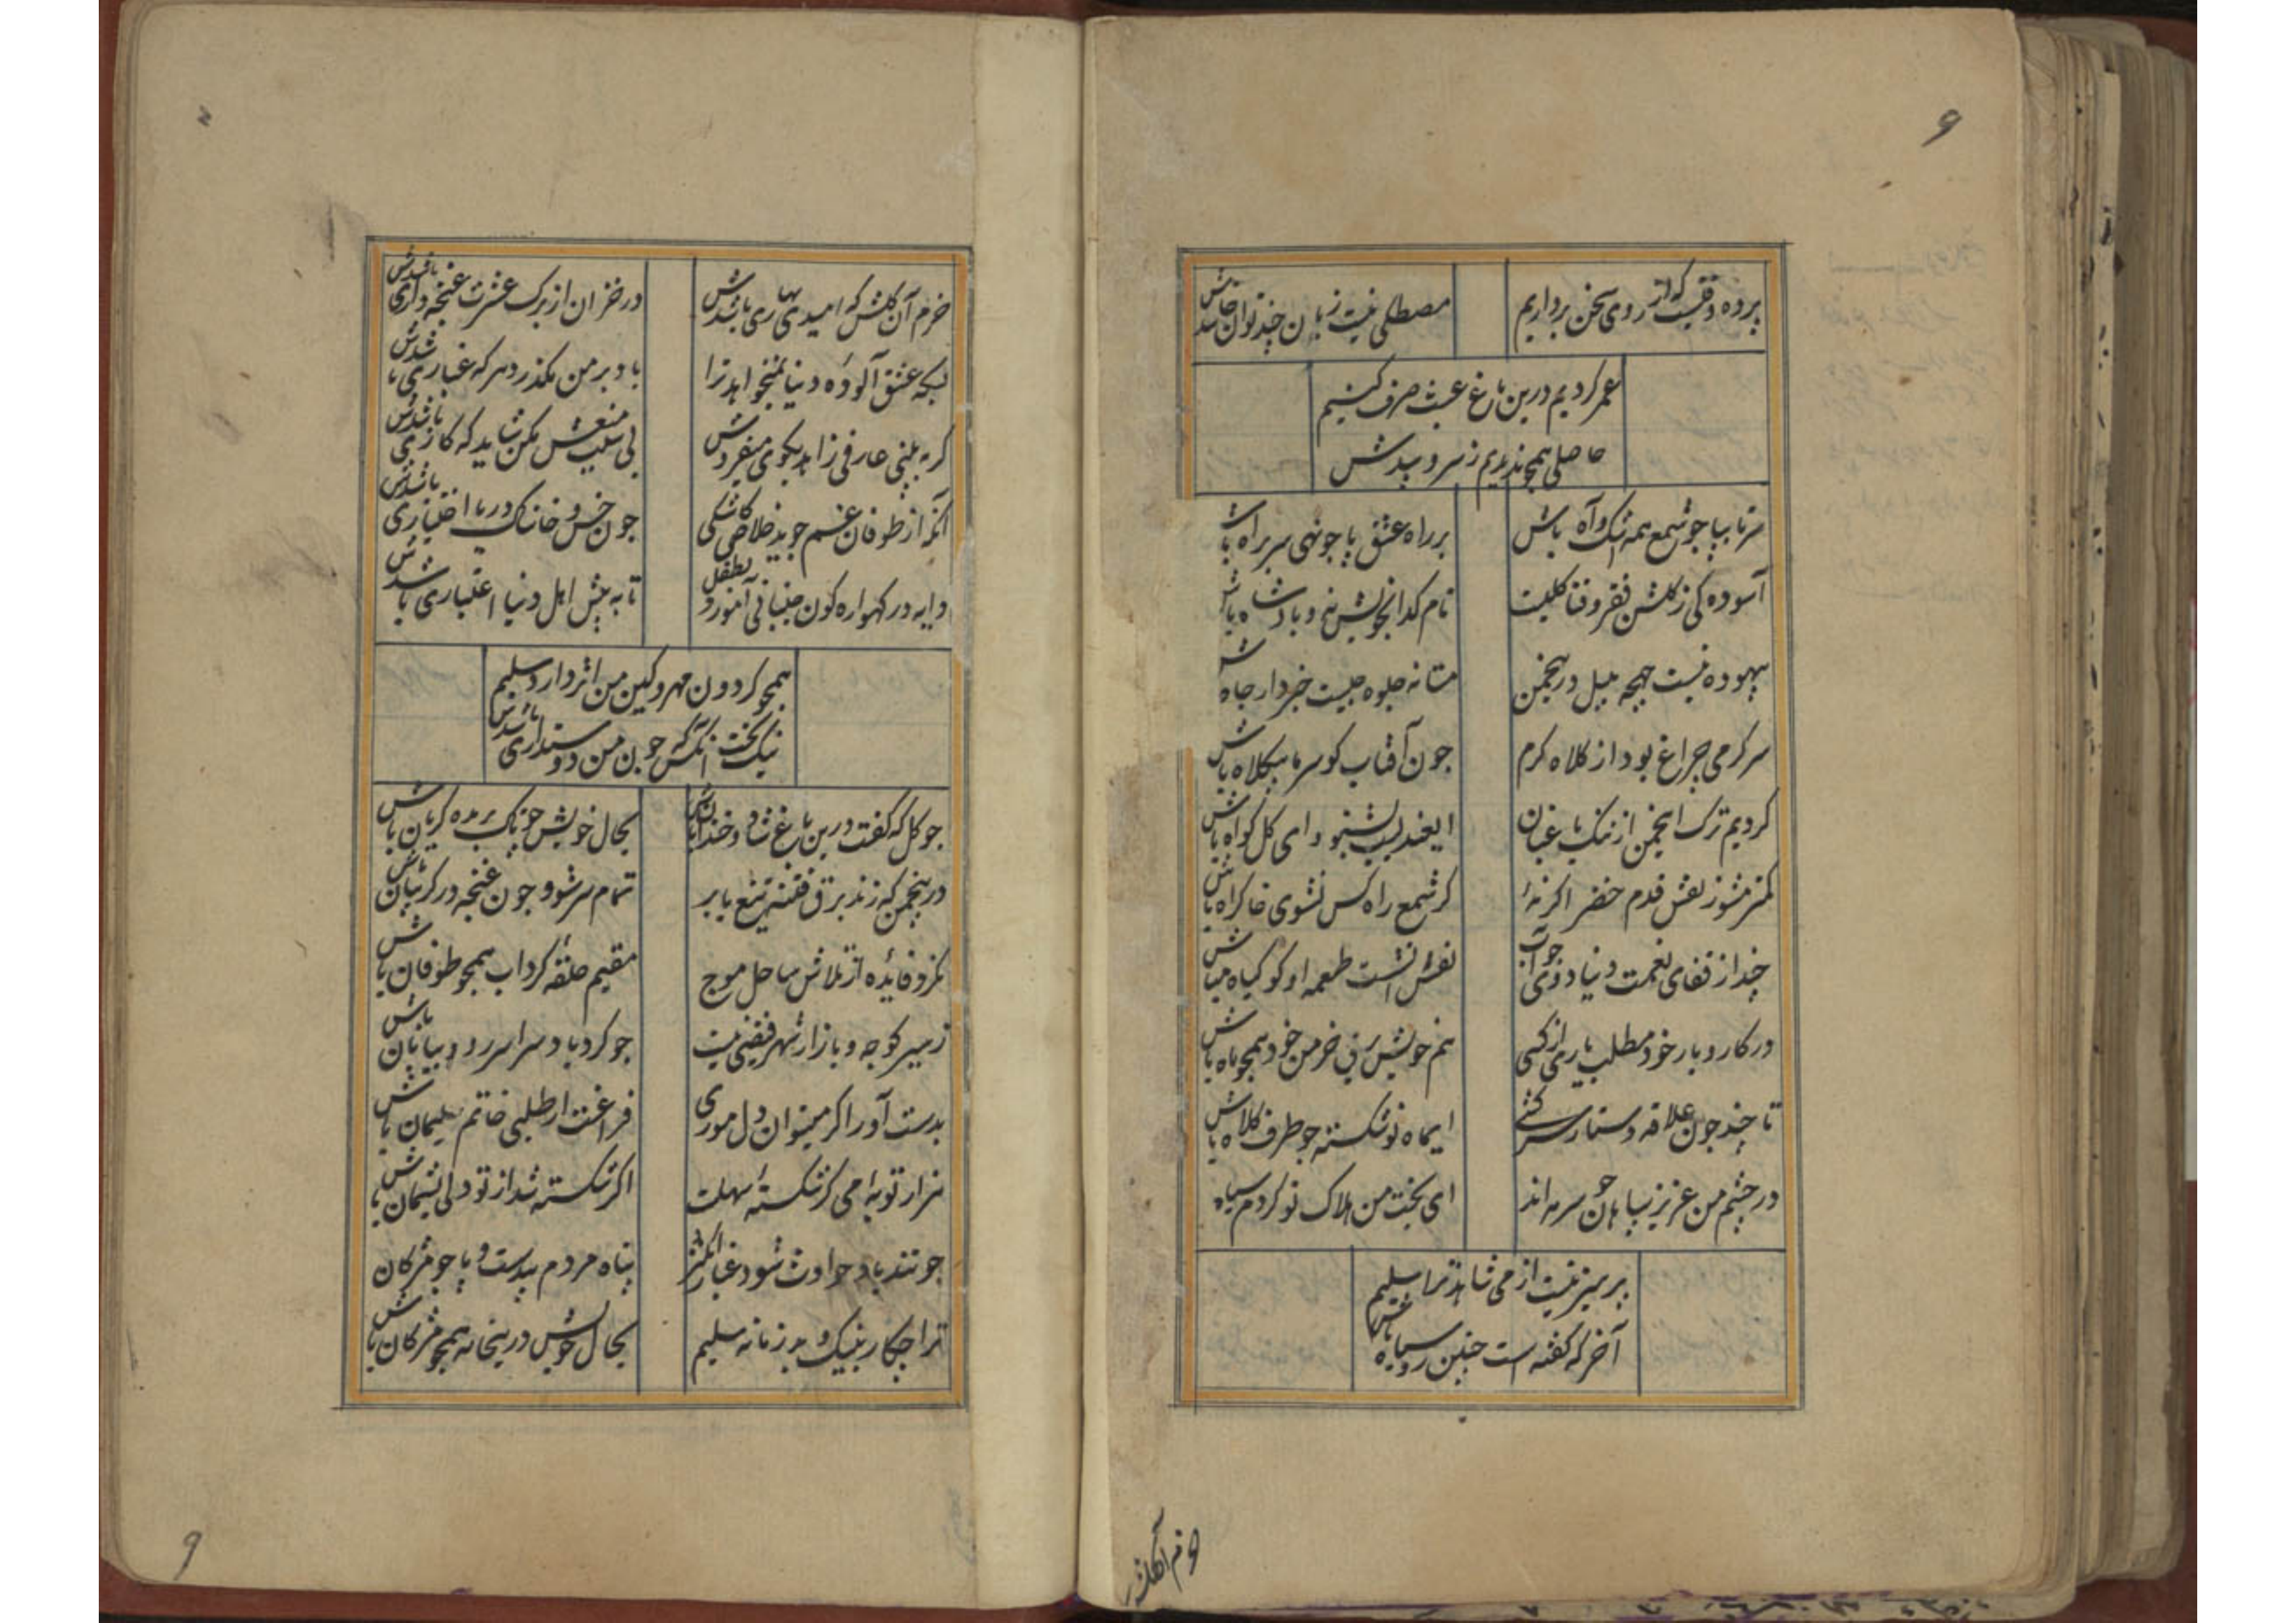 ۶
پرده وقتیست که از روی سخن برداریم مصطلی نیست زبان چند توان خاییدش
عمر کردیم درین باغ عبث صرف کلیم
حاصلی هیچ ندیدیم ز سرو و بیدش
سر تا بپا چو شمع همه اشک و آه باش بر راه عشق پا چو نهی سر براه باش
آسوده کی ز کلشن فقر و فنا کلیت نام کدا بخویش نه و پادشاه باش
بیهوده نیست جهجه بلبل درین چمن مستانه جلوه جیست خبردار جاه باش
سرکرمی چراغ بود از کلاه کرم جون آفتاب کو سر ما بیکلاه باش
کردیم ترک این چمن از ننک باغبان ای عندلیب بشنو و ای کل کواه باش
کمتر مشو ز نقش قدم خضر اکر نهٔ کر شمع راه کس نشوی خاک راه باش
چند از قفای نعمت دنیا دوی جو آب نفس است طعمه او کو کیاه باش
در کار و بار خود مطلب یاری از کسی هم خویش برفی خرمن خود همچو ماه باش
تا چند جون علاقه دستار سرکشی ای ماه نو شکسته چو طرف کلاه باش
در چشم من عزیز سیاهان جو سرمه اند ای بخت من هلاک تو کردم سیاه
پرهیز نیست از می و شاهد ترا سلیم
آخر که کفته است چنین روسیاه باش
خرم آن کلشن
خرم آن کلشن که امید بهاری باشدش در خزان از برک عشرت غنچه واری باشدش
بسکه عشق آلودهٔ دنیا نمیخواهد ترا باد بر من نکذرد هرکه غباری باشدش
کر ببینی عارفی زاهد بکوی میفروش بی سلیب منعش مکن شاید که کاری باشدش
آنکه از طوفان غم جوید خلاصی کاشکی جون خس و خاشاک دریا اختیاری باشدش
دایه در کهواره کون جنبانی آموزد بطفل تا به پیش اهل دنیا اعتباری باشدش
همچو کردون مهر و کین من اثر دارد سلیم
نیک بخت آنکس که جون من دوستداری باشدش
جو کل که کفت درین باغ شاد و خندان باش بحال خویش جو تاک بریده کریان باش
درین چمن که زند برق فتنه تیغ بابر تمام سر شو و جون غنچه در کریبان باش
نکرد فایده از تلاش ساحل موج مقیم حلقه کرداب همچو طوفان باش
ز سیر کوجه و بازار شهر فیضی نیست جو کردباد سراسر رو بیابان باش
بدست آور اکر میتوان دل موری فراغت ار طلبی خاتم سلیمان باش
هزار توبه ز می کر شکستهٔ سهلست اکر شکسته شد از تو دلی پشیمان باش
جو تندباد حوادث شود غبار انکیز پناه مردم بیدست و پا جو مژکان
ترا چکار به نیک و بد زمانه سلیم بحال خویش درین خانه همچو مژکان باش
۹